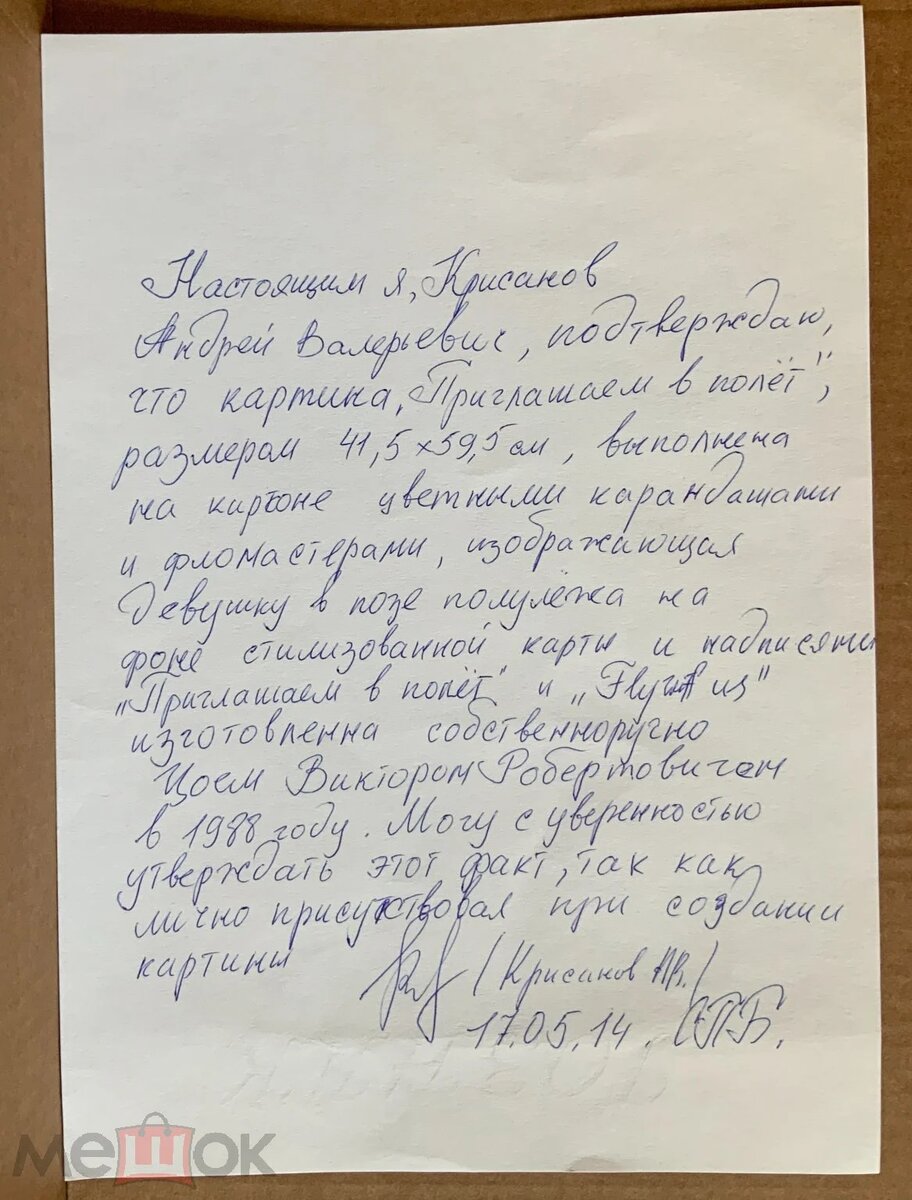 Настоящим я, Крисанов
Андрей Валерьевич, подтверждаю,
что картина „Приглашаем в полёт",
размером 41,5×59,5 см, выполнена
на картоне цветными карандашами
и фломастерами, изображающая
девушку в позе полулёжа на
фоне стилизованной карты и надписями
„Приглашаем в полёт" и „
изготовленна собственноручно
Цоем Виктором Робертовичем
в 1988 году. Могу с уверенностью
утверждать этот факт, так как
лично присутствовал при создании
картины
/Крисанов А.В./
17.05.14. СПБ.
мешок